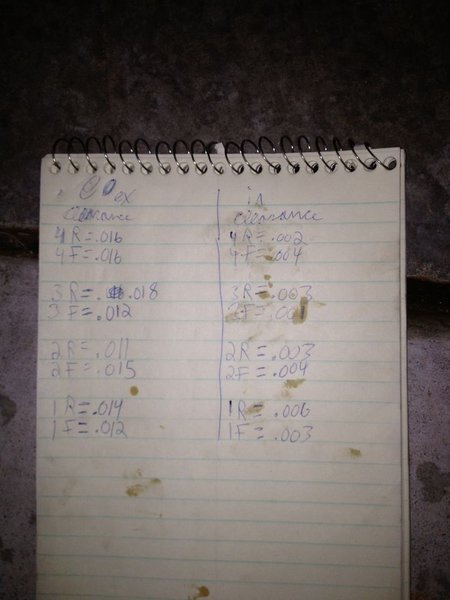 ex
Clearance
4R=.016
4F=.016
3R=.018
3F=.012
2R=.011
2F=.015
1R=.014
1F=.012
in
Clearance
4R=.002
4F=.004
3R=.003
2R=.003
2F=.004
1R=.006
1F=.003